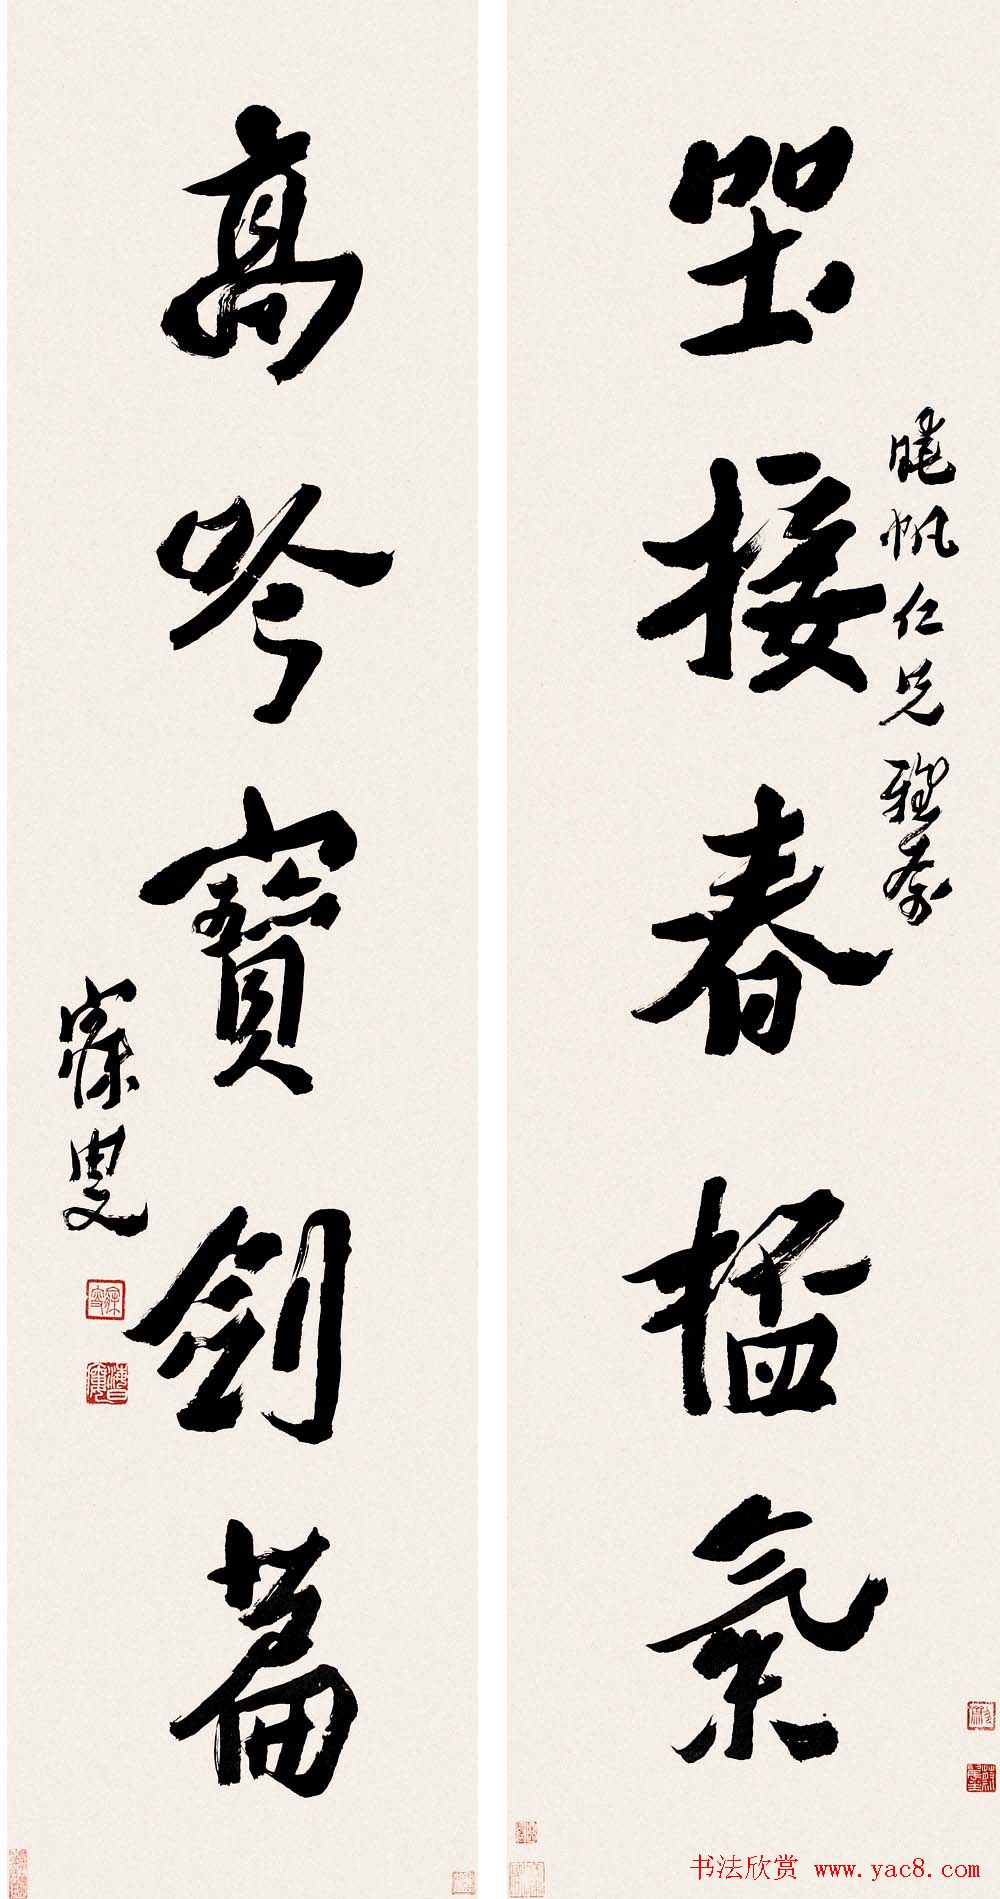 曉帆仁兄雅
坐接春杯氣
高吟寶劍篇
寐叟
海日廔
书法欣赏 www.yac8.com